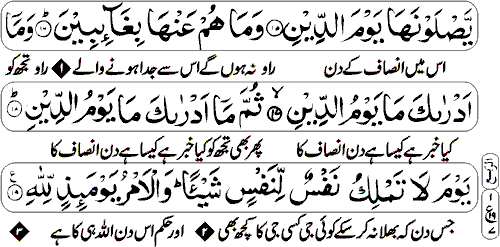 يَّصْلَوْنَهَا يَوْمَ الدِّيْنِ ﴿۱۵﴾ وَمَا هُمْ عَنْهَا بِغَآئِبِيْنَ ﴿۱۶﴾ وَمَاۤ
اس میں انصاف کے دن اور نہ ہوں گے اس سے جدا ہونے والے ۱ اور تجھ کو
اَدْرٰىكَ مَا يَوْمُ الدِّيْنِ ﴿۱۷﴾ ثُمَّ مَاۤ اَدْرٰىكَ مَا يَوْمُ الدِّيْنِ ﴿۱۸﴾
کیا خبر ہے کیسا ہے دن انصاف کا پھر بھی تجھ کو کیا خبر ہے کیسا ہے دن انصاف کا
يَوْمَ لَا تَمْلِكُ نَفْسٌ لِّنَفْسٍ شَيْـًٔا وَالْاَمْرُ يَوْمَئِذٍ لِّلّٰهِ ﴿۱۹﴾
جس دن کہ بھلا نہ کر سکے کوئی جی کسی جی کا کچھ بھی ۲ اور حکم اس دن اللہ ہی کا ہے ۳